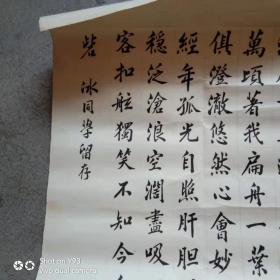 萬頃著我扁舟一葉
俱澄澈悠然心會妙
經年孤光自照肝胆
穩泛滄浪空濶盡吸
客扣舷獨笑不知今
冰同學留存
SHOT ON Y93
vivo AI CAMERA